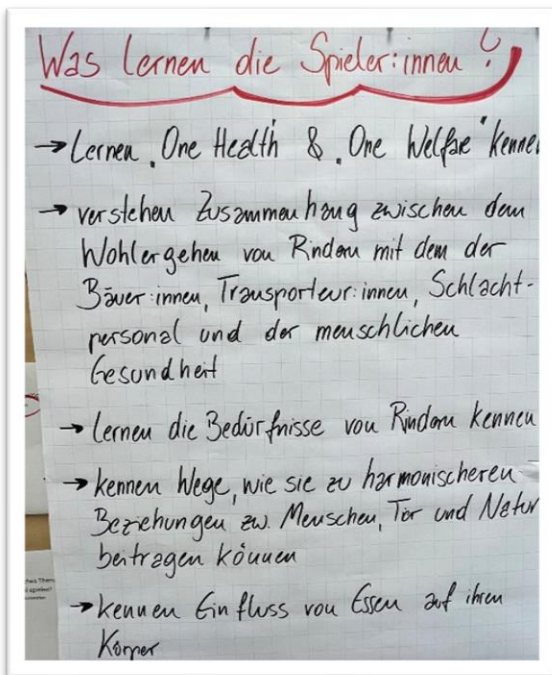 Was lernen die Spieler:innen?
→ Lernen „One Health & „One Welfare“ kennen
→ verstehen Zusammenhang zwischen dem
Wohlergehen von Rindern mit dem der
Bäuer:innen, Transporteur:innen, Schlacht-
personal und der menschlichen
Gesundheit
→ lernen die Bedürfnisse von Rindern kennen
→ kennen Wege, wie sie zu harmonischeren
Beziehungen zw. Menschen, Tier und Natur
beitragen können
→ kennen Einfluss von Essen auf ihren
Körper